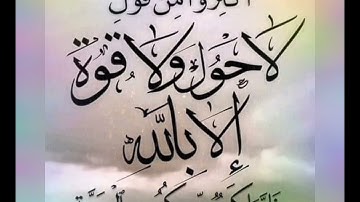 أكثروا من قول
لا حول ولا قوة
إلا بالله